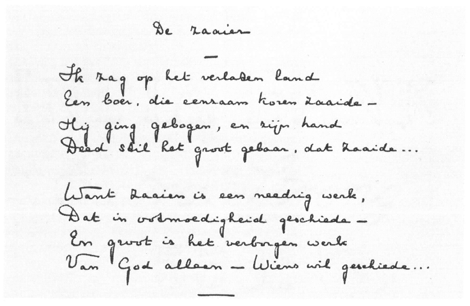 De zaaier
Ik zag op het verlaten land
Een boer, die eenzaam koren zaaide –
Hij ging gebogen, en zijn hand
Deed stil het groot gebaar, dat zaaide...
Want zaaien is een needrig werk,
Dat in ootmoedigheid geschiede –
En groot is het verborgen werk
Van God alleen – Wiens wil geschiede...